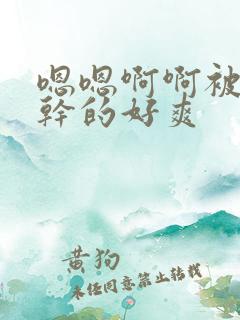 嗯嗯啊啊被
幹的好爽
黄狗
未经同意禁止转载